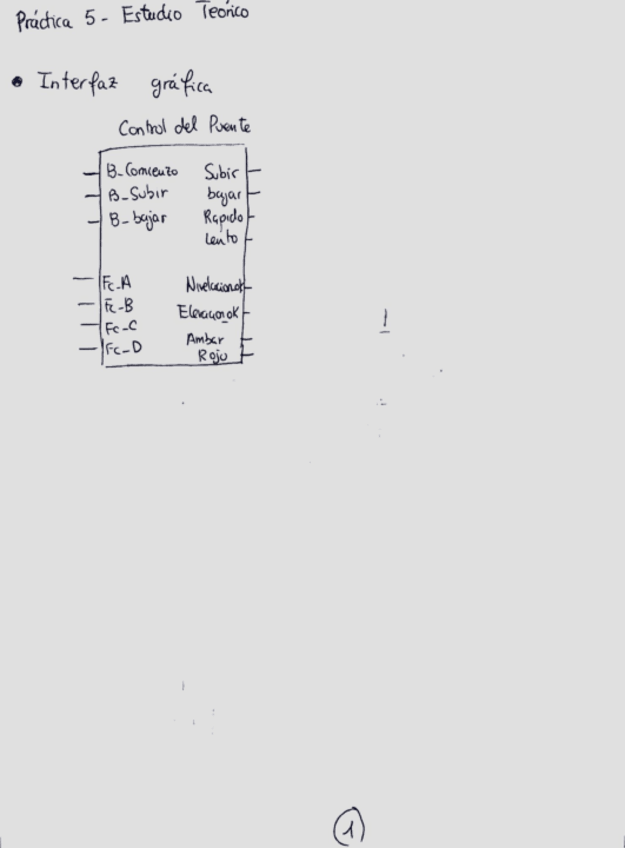 Práctica 5 - Estudio Teórico
• Interfaz gráfica
Control del Puente
B_Comienzo Subir
B_Subir bajar
B_bajar Rapido
Lento
Fc_A Nivelacionok
Fc_B Elevacionok
Fc_C Ambar
Fc_D Rojo
1